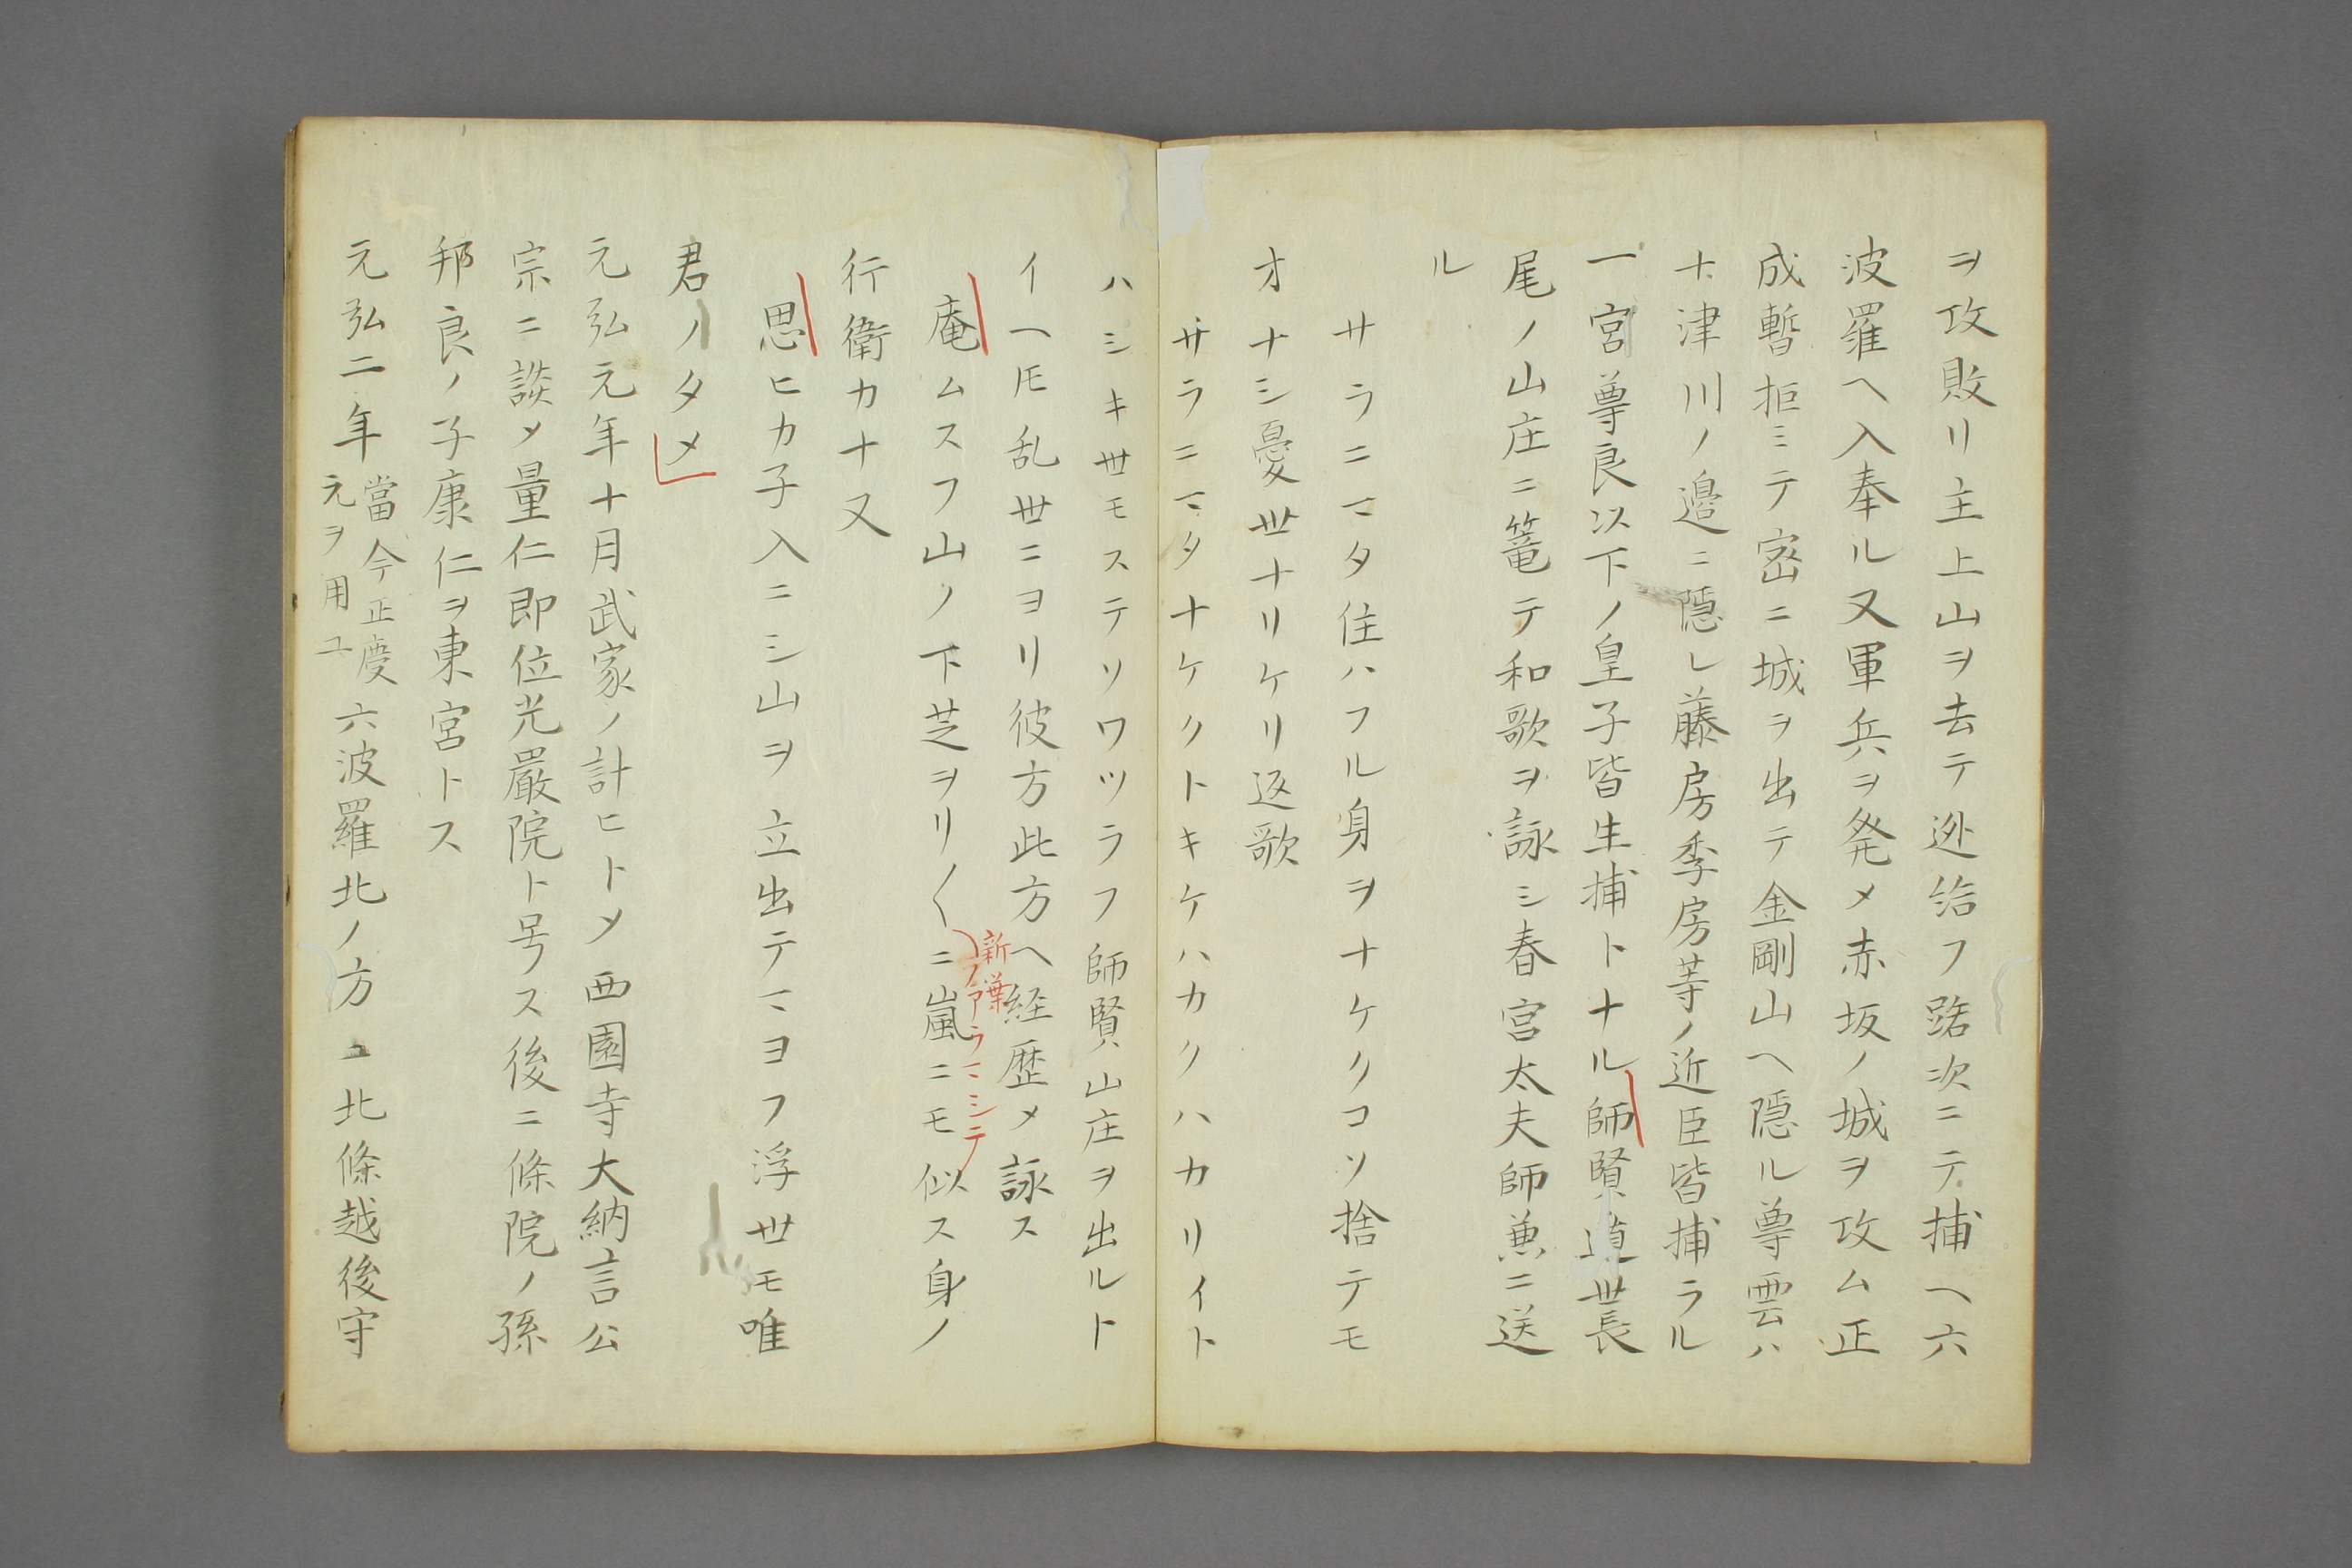 ヲ攻敗リ主上山ヲ去テ迯給フ路次ニテ捕ヘ六
波羅ヘ入奉ル又軍兵ヲ発メ赤坂ノ城ヲ攻ム正
成暫拒ミテ密ニ城ヲ出テ金剛山ヘ隠ル尊雲ハ
十津川ノ邉ニ隠レ藤房季房等ノ近臣皆捕ラル
一宮尊良以下ノ皇子皆生捕トナル師賢遁世長
尾ノ山庄ニ篭テ和歌ヲ詠シ春宮太夫師兼ニ送
ル
サラニマタ住ハフル身ヲナケクコソ捨テモ
オナシ憂世ナリケリ返歌
サラニマタナケクトキケハカクハカリイト
ハシキ世モステソワツラフ師賢山庄ヲ出ルト
イヘ𪜈乱世ニヨリ彼方此方ヘ経歴メ詠ス
庵ムスフ山ノ下芝ヲリ〱ニ嵐ニモ似ス身ノ
新葉
ノアラマシテ
行衛カナ又
思ヒカ子入ニシ山ヲ立出テマヨフ浮世モ唯
君ノタメ
元弘元年十月武家ノ計ヒトメ西園寺大納言公
宗ニ談メ量仁即位光嚴院ト号ス後ニ條院ノ孫
邦良ノ子康仁ヲ東宮トス
元弘二年當今正慶元ヲ用ユ六波羅北ノ方ユ北條越後守